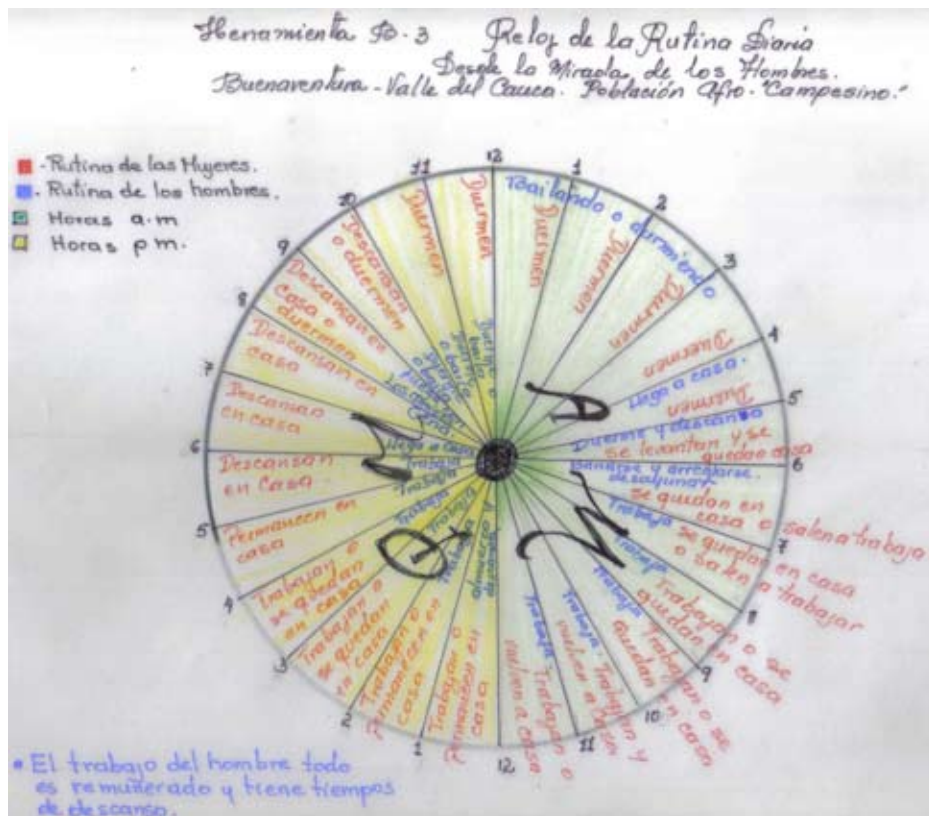 Herramienta No. 3 Reloj de la Rutina Diaria
Desde la Mirada de los Hombres.
Buenaventura - Valle del Cauca. Población Afro. "Campesino."
- Rutina de las Mujeres.
- Rutina de los hombres.
Horas a.m
Horas p m.
12
1
2
3
4
5
6
7
8
9
10
11
12
1
2
3
4
5
6
7
8
9
10
11
A M
P M
Bailando o durmiendo
Duermen
Duermen
Duermen
Duermen
Llega a casa.
Duermen
Duerme y descansa
se levantan y se
quedan casa
Bañarse y arreglarse.
desayunar
se quedan en
casa o salen a trabaja
Trabaja
se quedan en casa
o salen a trabajar
Trabaja
Trabajan o se
quedan en casa
Trabaja
Trabajan o se
quedan en casa
Trabaja
Trabajan y
vuelven a casa
Trabaja
Trabajan o
vuelven a casa
almuerzo
Trabajan o
Permanecen en
casa
Trabaja
Trabajan o
Permanecen en
casa
Trabaja
Trabajan o
se quedan
en casa
Trabaja
Trabajan o
se quedan
en casa
Trabaja
Permanecen en
casa
Trabaja
Descansan
en casa.
Llega a casa
Descansan
en casa
Descansan en
casa
Descansan en
casa o
duermen
Descansan
o duermen
Duermen
Duermen
• El trabajo del hombre todo
es remunerado y tiene tiempos
de descanso.